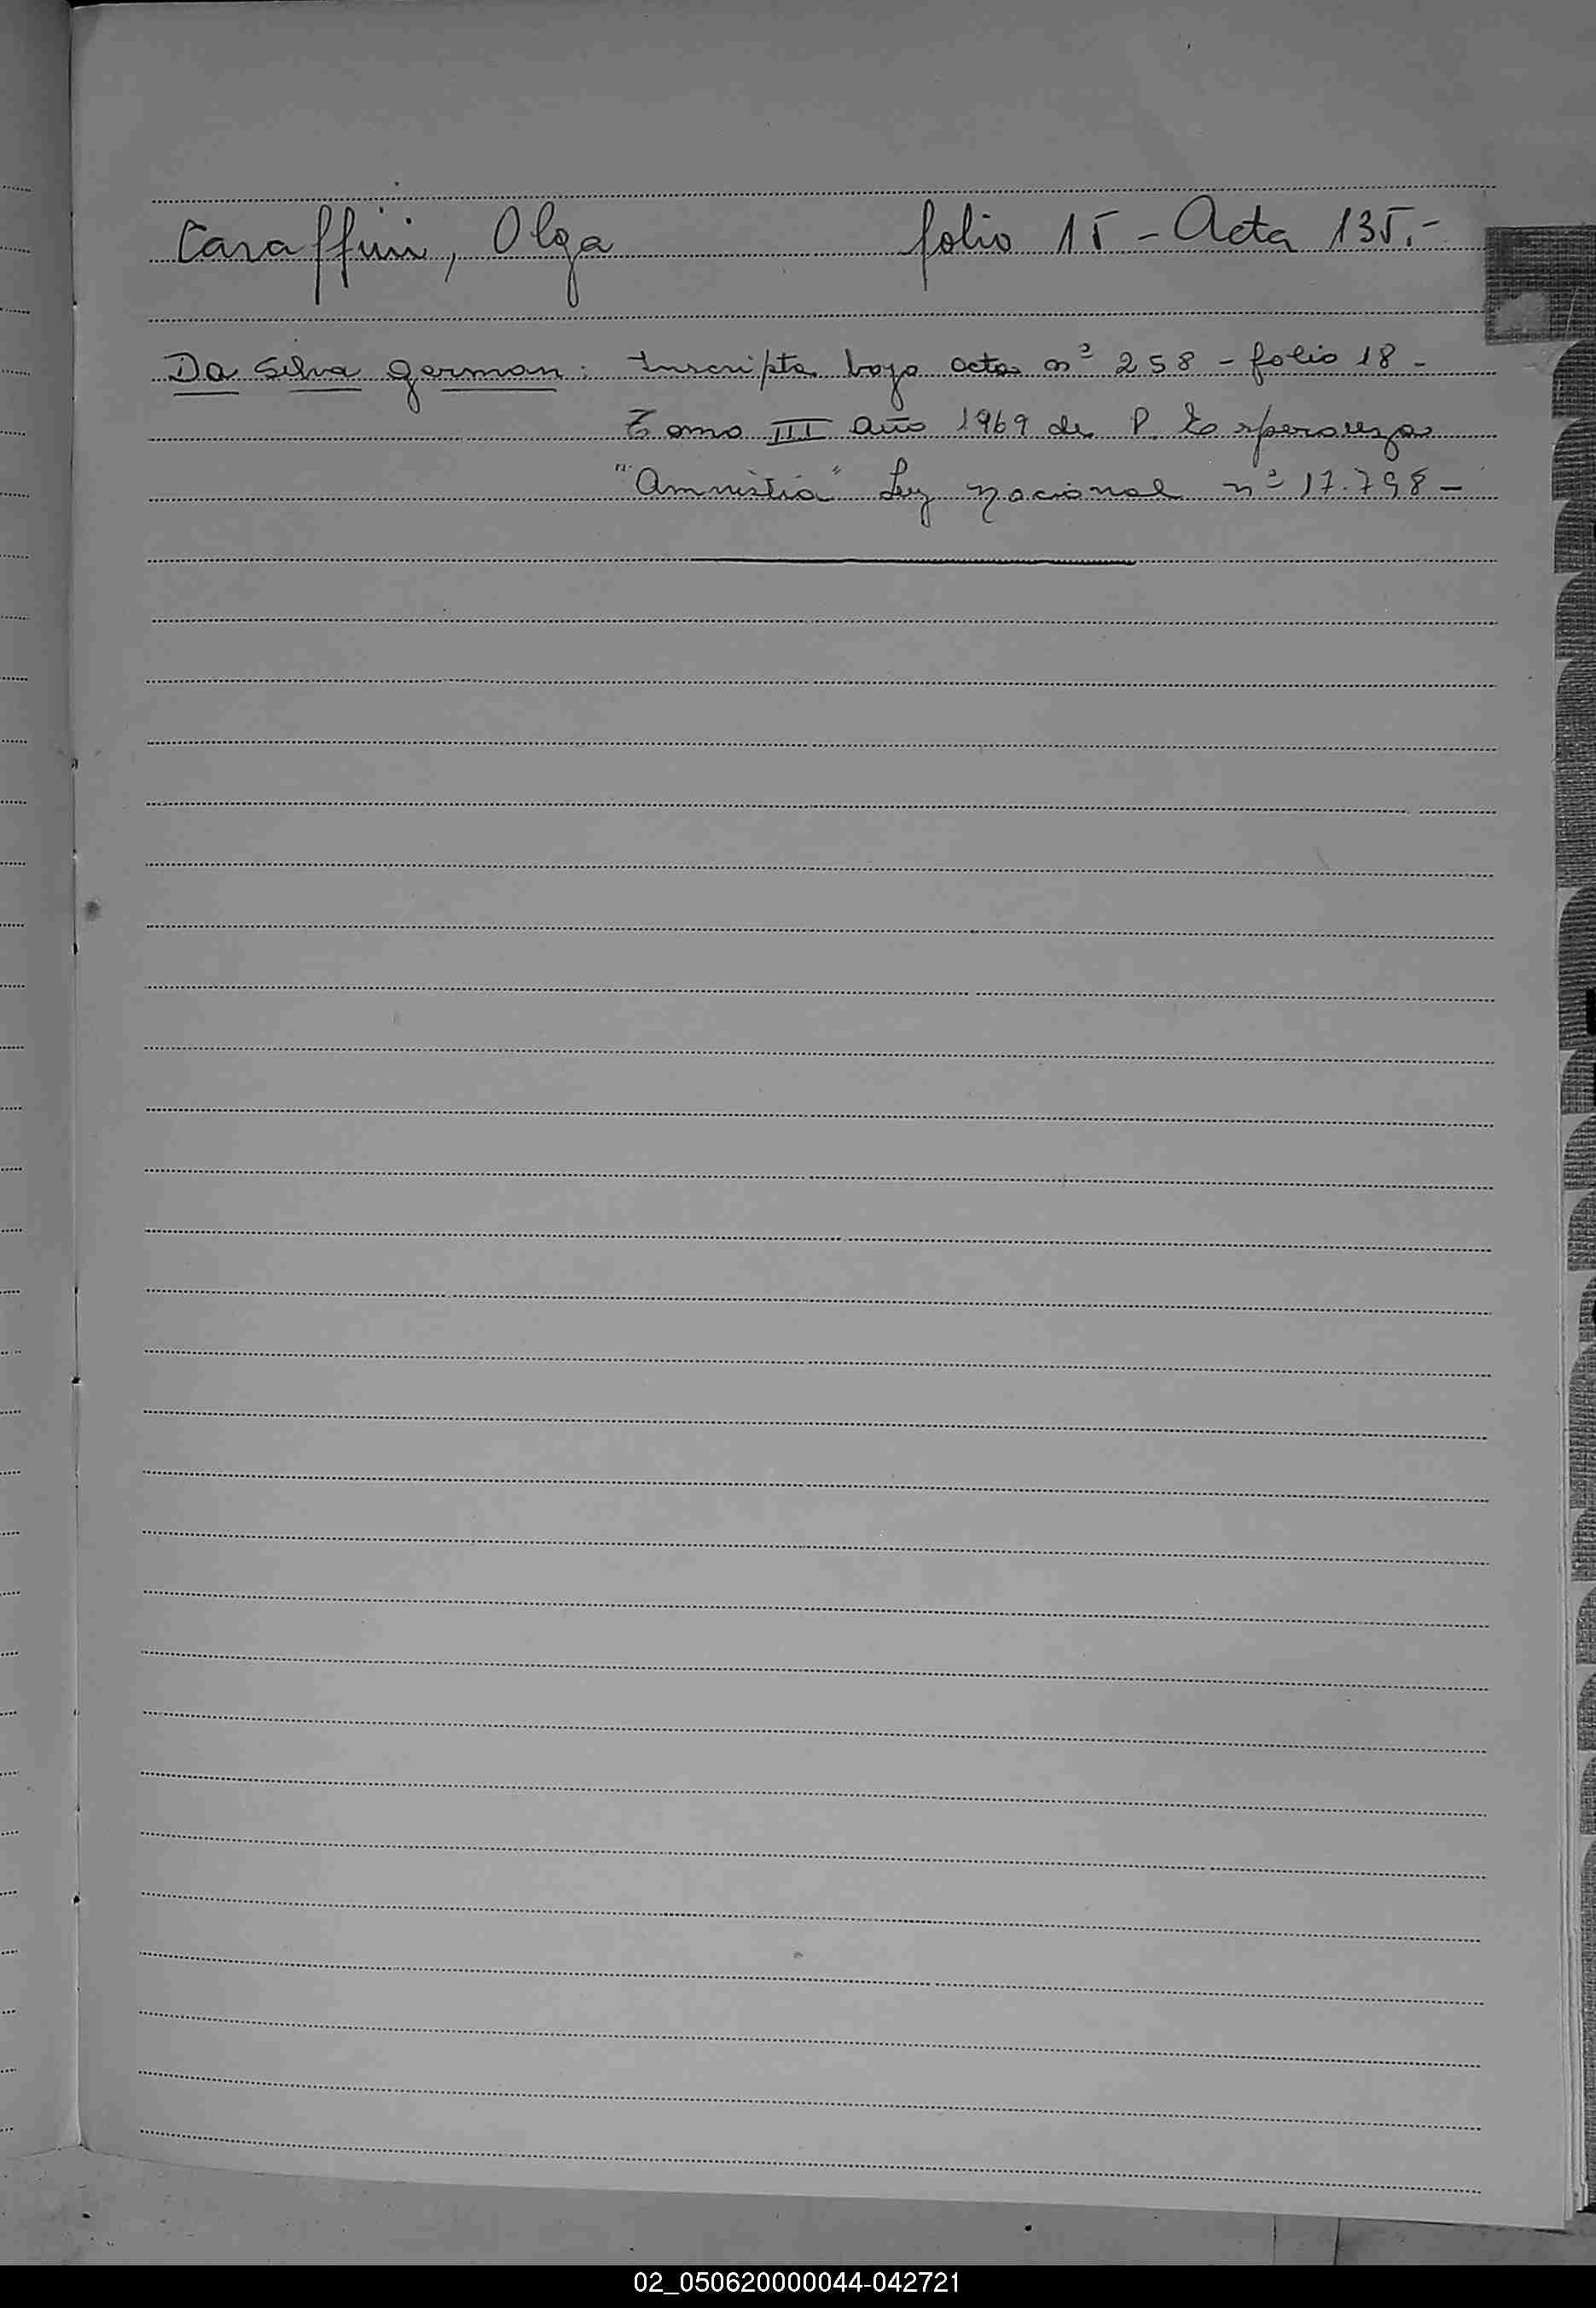 Caraffini, Olga folio 15 - Acta 135.-
Da Silva German: Inscripta bajo acta nº 258 - folio 18 -
Tomo III año 1969 de P. Esperanza
"Amnistia" Ley nacional nº 17.798 -
02_050620000044-042721